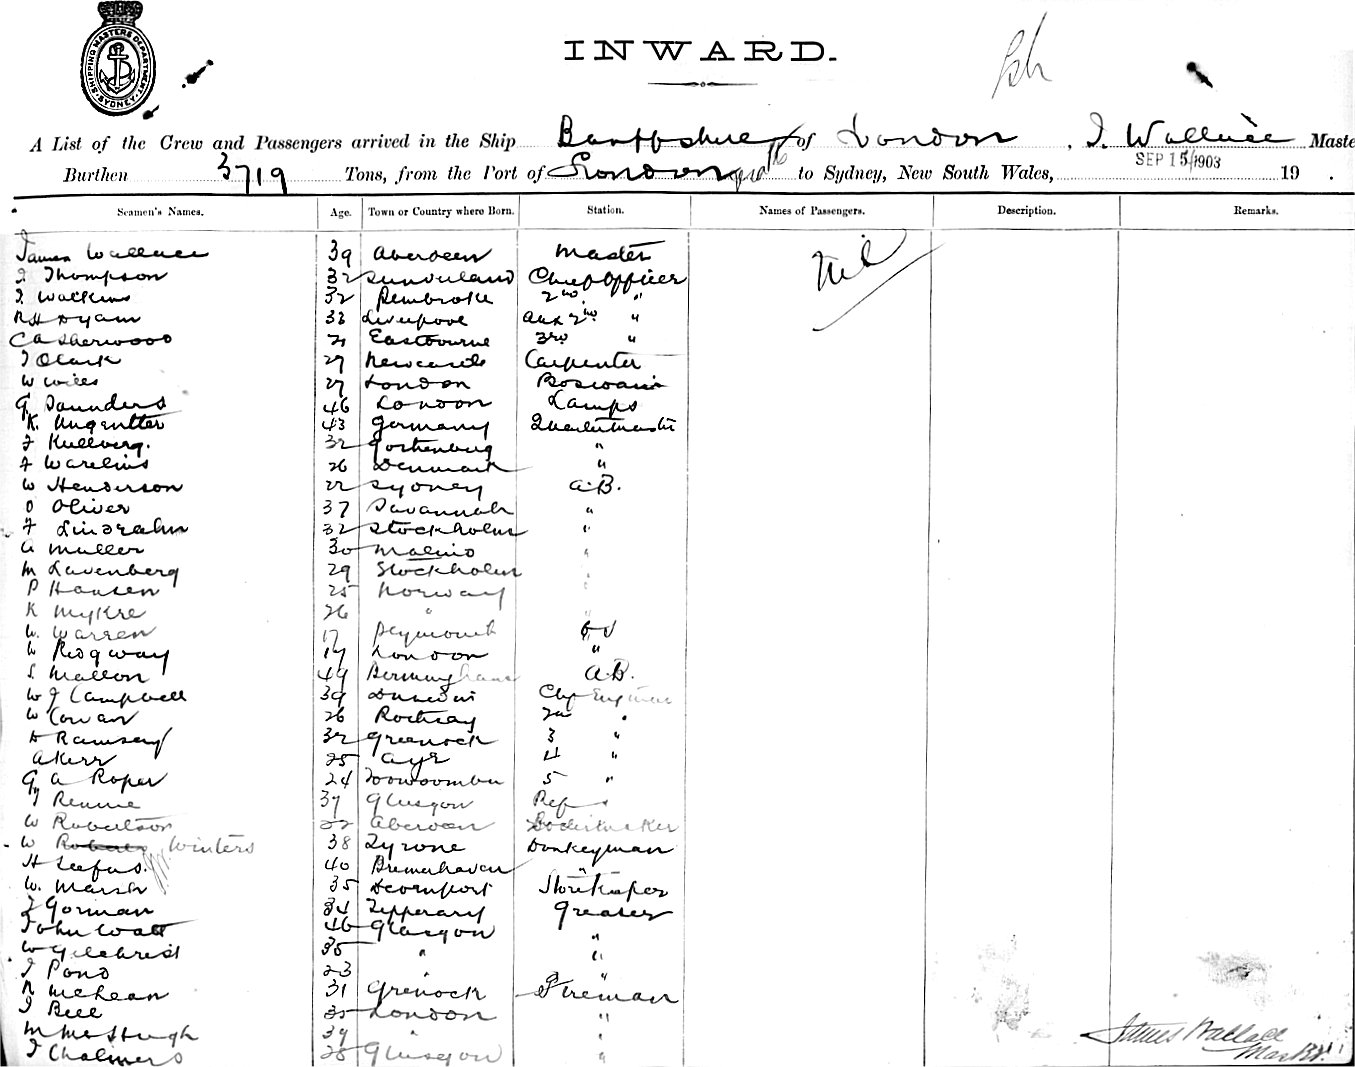 SHIPPING MASTERS DEPARTMENT SYDNEY
INWARD.
A List of the Crew and Passengers arrived in the Ship Banffshire of London, J. Wallace Maste
Burthen 3719 Tons, from the Port of London to Sydney, New South Wales, SEP 15 1903 19 .
Seamen's Names. Age. Town or Country where Born. Station. Names of Passengers. Description. Remarks.
James Wallace 39 Aberdeen Master Nil
J Thompson 32 Sunderland Chief Officer
J Watkins 32 Pembroke 2nd "
R H Dyam 33 Liverpool Aux 2nd "
C A Sherwood 21 Eastbourne 3rd "
J Clark 29 Newcastle Carpenter
W Wiles 27 London Boswain
G Saunders 46 London Lamps
K. 43 Germany Quartermaster
F Kullberg. 32 Gothenburg "
F Warelius 26 Denmark "
W Henderson 22 Sydney A.B.
O Oliver 37 Savannah "
F Lindrahn 32 Stockholm "
A Muller 30 Malmo "
M Lavenberg 29 Stockholm "
P Hansen 25 Norway "
K Mykre 26 " "
W. Warren 17 Plymouth O S
W Ridgway 19 London "
S Mallon 49 Birmingham A.B.
W J Campbell 39 Dunedin Chf Engineer
W Cowan 26 Rothsay 2nd "
D Ramsay 32 Greenock 3 "
A Kerr 25 Ayr 4 "
G A Roper 24 Toowoomba 5 "
J Rennie 37 Glasgow Ref
W Robertson 22 Aberdeen Boilermaker
W Roberts Winters 38 Tyrone Donkeyman
H Seefus. 40 Bremahaven "
W. Marsh 35 Devonport Storekeeper
J Gorman 34 Tipperary Greaser
John Watt 46 Glasgow "
W Gilchrist 35 " "
J Pond 23 " "
R McLean 31 Grenock Fireman
J Bell 35 London "
M McHugh 39 " "
J Chalmers 28 Glasgow "
James Wallace
Master.